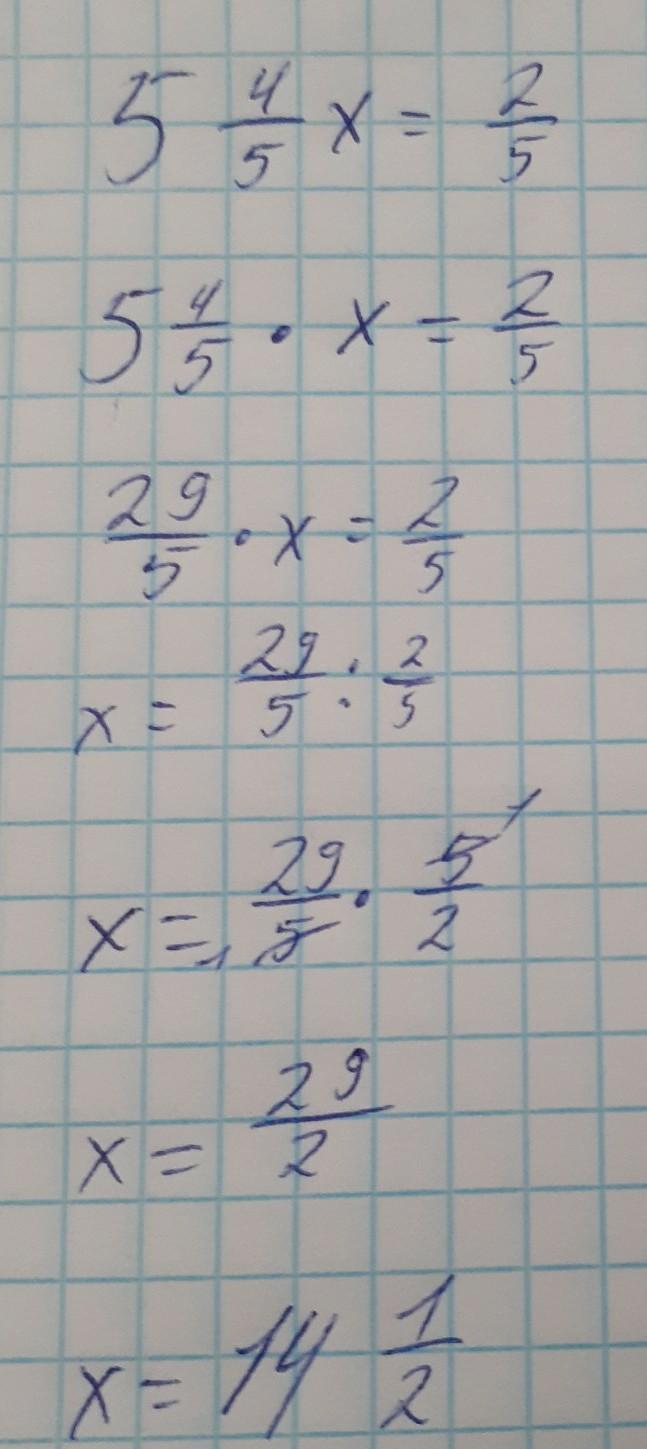 5 4/5 x = 2/5
5 4/5 · x = 2/5
29/5 · x = 2/5
x = 29/5 : 2/5
x = 29/5 · 5/2 1 1
x = 29/2
x = 14 1/2